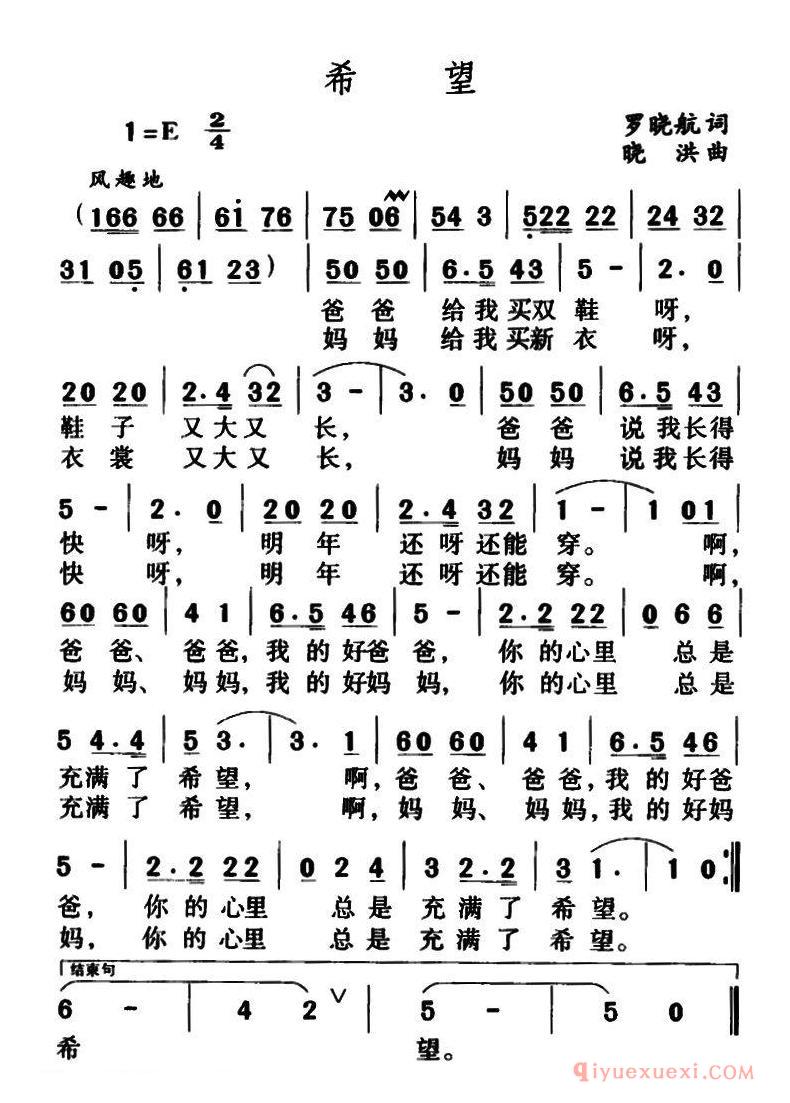 希 望
1=E 2/4
罗晓航 词
晓 洪 曲
风趣地
(166 66 | 61 76 | 75 06 | 54 3 | 522 22 | 24 32 |
31 05 | 61 23) | 50 50 | 6.5 43 | 5 - | 2. 0 |
爸爸 给我买双鞋 呀,
妈妈 给我买新衣 呀,
20 20 | 2.4 32 | 3 - | 3. 0 | 50 50 | 6.5 43 |
鞋子 又大又 长, 爸爸 说我长得
衣裳 又大又 长, 妈妈 说我长得
5 - | 2. 0 | 20 20 | 2.4 32 | 1 - | 1 01 |
快 呀, 明年 还呀还能 穿。 啊,
快 呀, 明年 还呀还能 穿。 啊,
60 60 | 4 1 | 6.5 46 | 5 - | 2.2 22 | 0 6 6 |
爸爸、 爸爸, 我的好爸 爸, 你的心里 总是
妈妈、 妈妈, 我的好妈 妈, 你的心里 总是
5 4.4 | 5 3. | 3. 1 | 60 60 | 4 1 | 6.5 46 |
充满了 希望, 啊, 爸爸、 爸爸, 我的好爸
充满了 希望, 啊, 妈妈、 妈妈, 我的好妈
5 - | 2.2 22 | 0 2 4 | 3 2.2 | 3 1. | 1 0 :||
爸, 你的心里 总是 充满了 希望。
妈, 你的心里 总是 充满了 希望。
结束句
6 - | 4 2 ∨ | 5 - | 5 0 ||
希 望。
qiyuexuexi.com